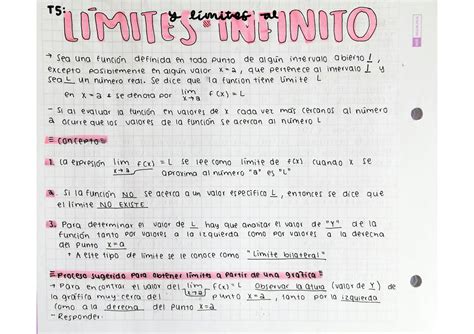 T5: y límites al
LÍMITES INFINITO
→ Sea una función definida en todo punto de algún intervalo abierto I,
excepto posiblemente en algún valor x=a, que pertenece al intervalo I y
sea L un número real. Se dice que la función tiene límite L
en x=a & se denota por lim x→a f(x)=L
- Si al evaluar la función en valores de x cada vez más cercanos al número
a ocurre que los valores de la función se acercan al número L
≡ Concepto ≡
1. La expresión lim x→a f(x)=L se lee como límite de f(x) cuando x se
aproxima al número "a" es "L"
2. Si la función NO se acerca a un valor específico L, entonces se dice que
el límite NO EXISTE
3. Para determinar el valor de L hay que analizar el valor de "Y" de la
función tanto por valores a la izquierda como por valores a la derecha
del punto x=a
• A este tipo de límite se le conoce como "Límite bilateral"
≡ Proceso sugerido para obtener límites a partir de una gráfica ≡
→ Para encontrar el valor del lim x→a f(x)=L Observar la altura (valor de Y) de
la gráfica muy cerca del punto x=a, tanto por la izquierda
como a la derecha del punto x=a
- Responder: